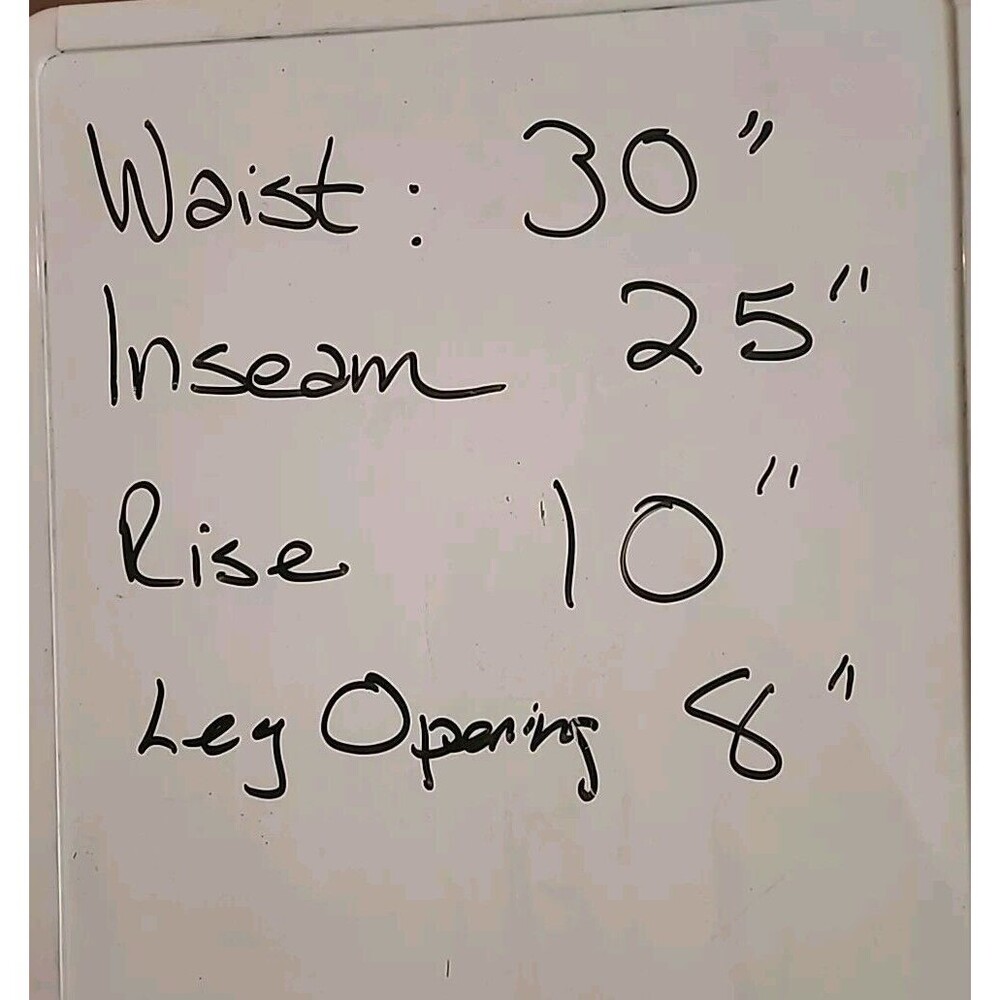 Waist: 30"
Inseam 25"
Rise 10"
Leg Opening 8"